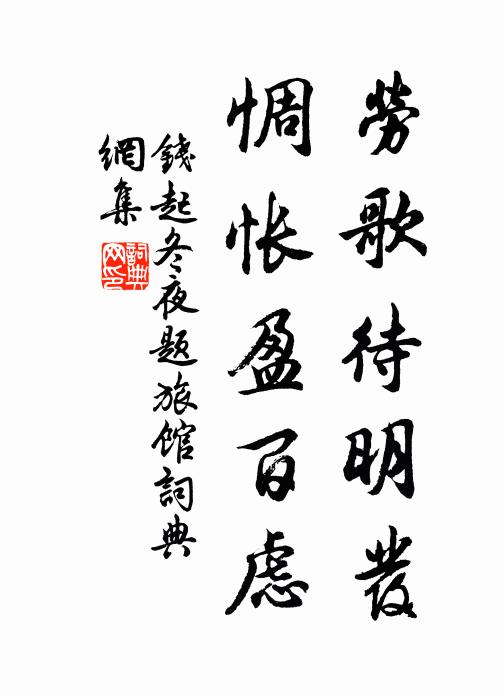 勞歌待明發
惆悵盈百慮
錢起冬夜題旅館詞典
網集
詞典網印